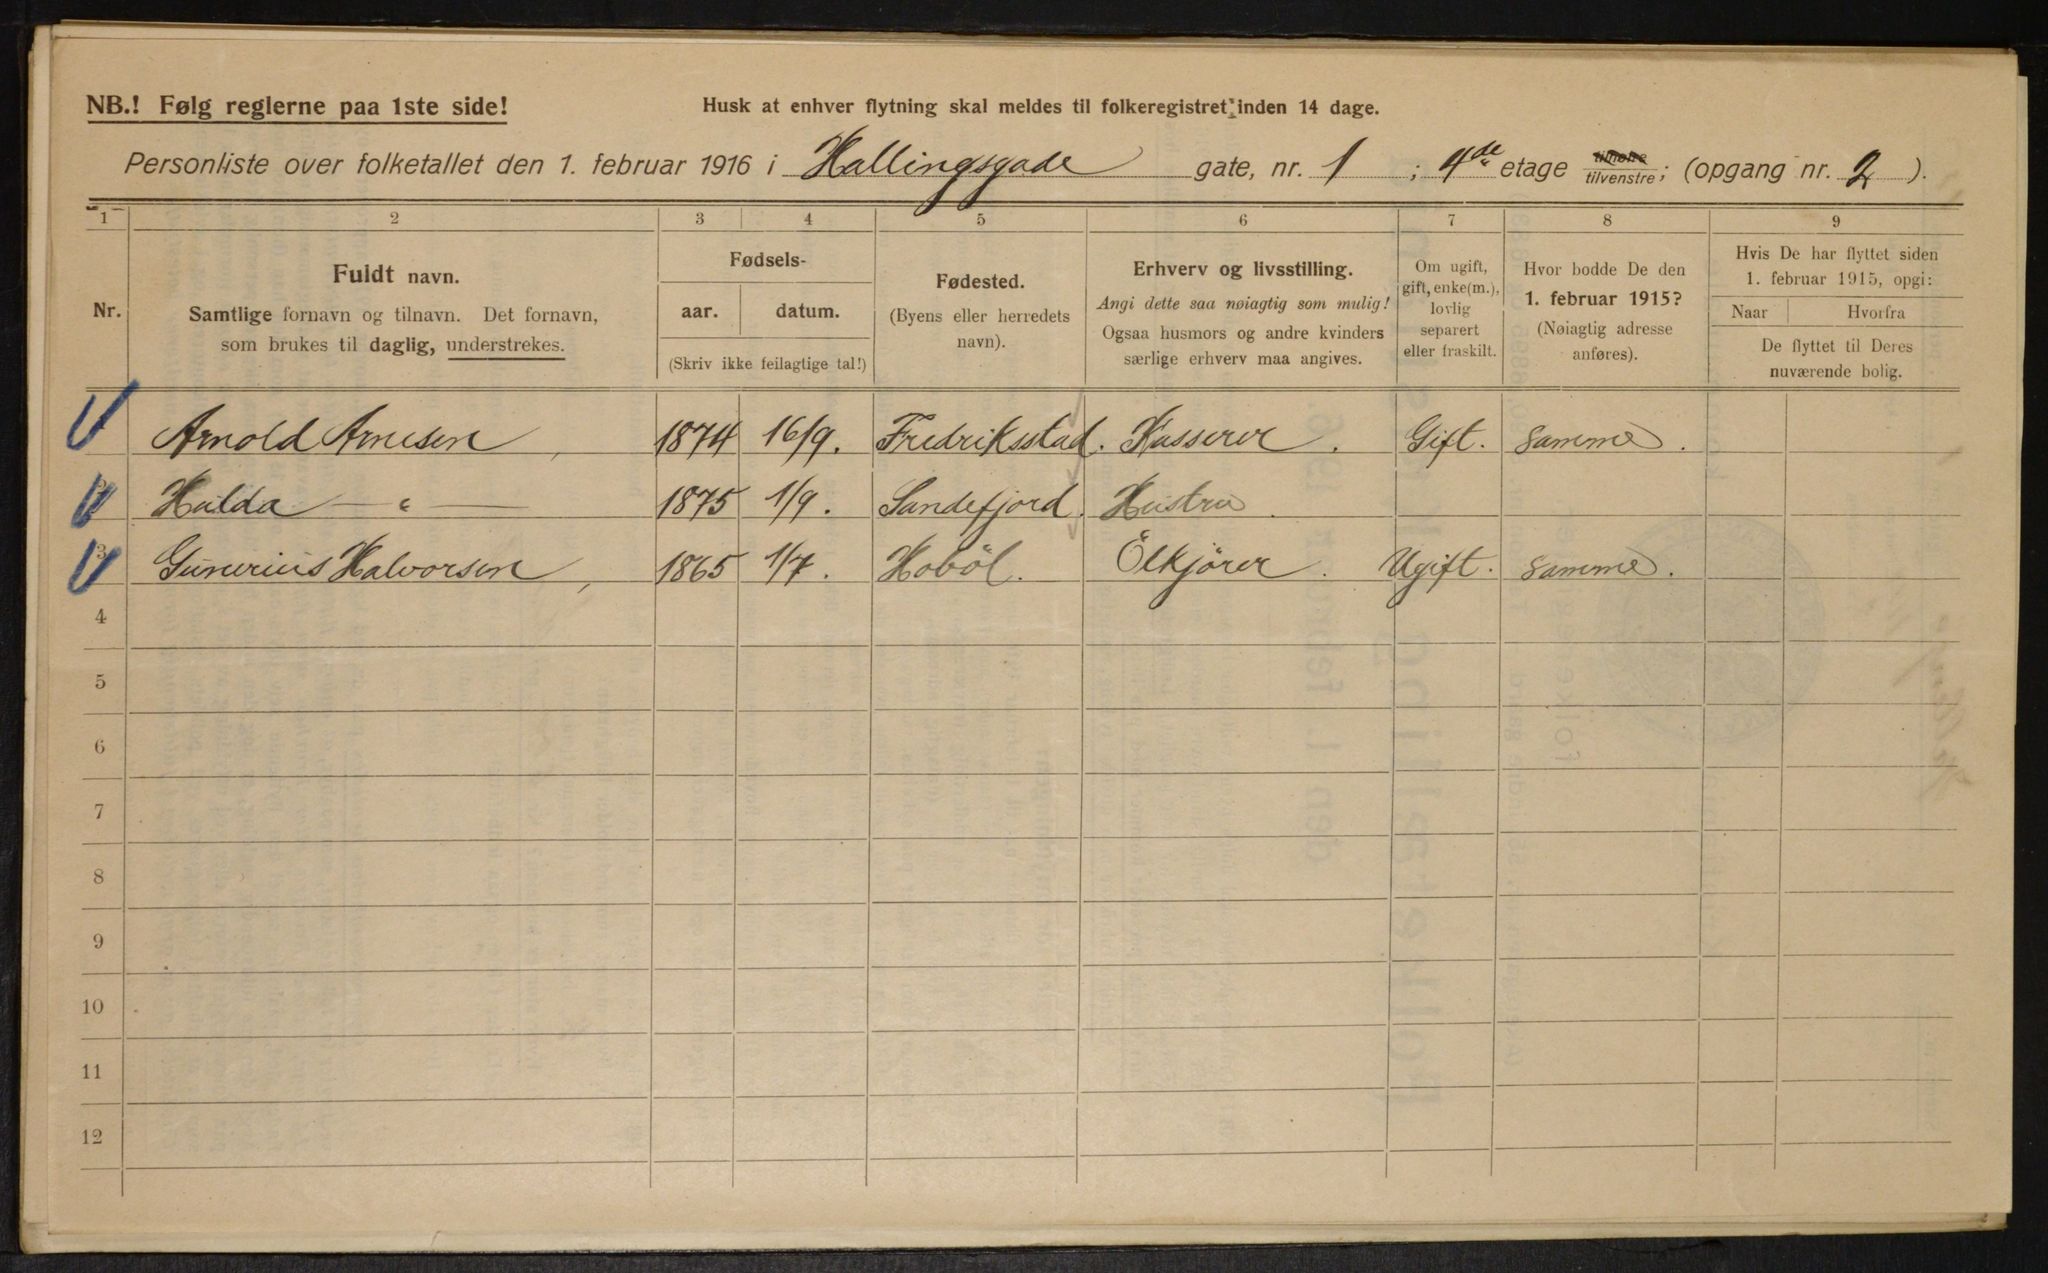 NB.! Følg reglerne paa 1ste side!
Husk at enhver flytning skal meldes til folkeregistret inden 14 dage.
Personliste over folketallet den 1. februar 1916 i Hallingsgade gate, nr. 1 ; 4de etage tilhøire tilvenstre; (opgang nr. 2 ).
1 2 3 4 5 6 7 8 9
Nr.
Fuldt navn.
Samtlige fornavn og tilnavn. Det fornavn,
som brukes til daglig, understrekes.
Fødsels-
aar. datum.
(Skriv ikke feilagtige tal!)
Fødested.
(Byens eller herredets
navn).
Erhverv og livsstilling.
Angi dette saa nøiagtig som mulig!
Ogsaa husmors og andre kvinders
særlige erhverv maa angives.
Om ugift,
gift, enke(m.),
lovlig
separert
eller fraskilt.
Hvor bodde De den
1. februar 1915?
(Nøiagtig adresse
anføres).
Hvis De har flyttet siden
1. februar 1915, opgi:
Naar Hvorfra
De flyttet til Deres
nuværende bolig.
Arnold Arnesen, 1874 16/9. Fredriksstad. Kasserer. Gift. Samme.
Hulda — " — 1875 1/9. Sandefjord. Hustru.
3 Gunerius Halvorsen, 1865 1/7. Hoböl. Ölkjører. Ugift. Samme.
4
5
6
7
8
9
10
11
12